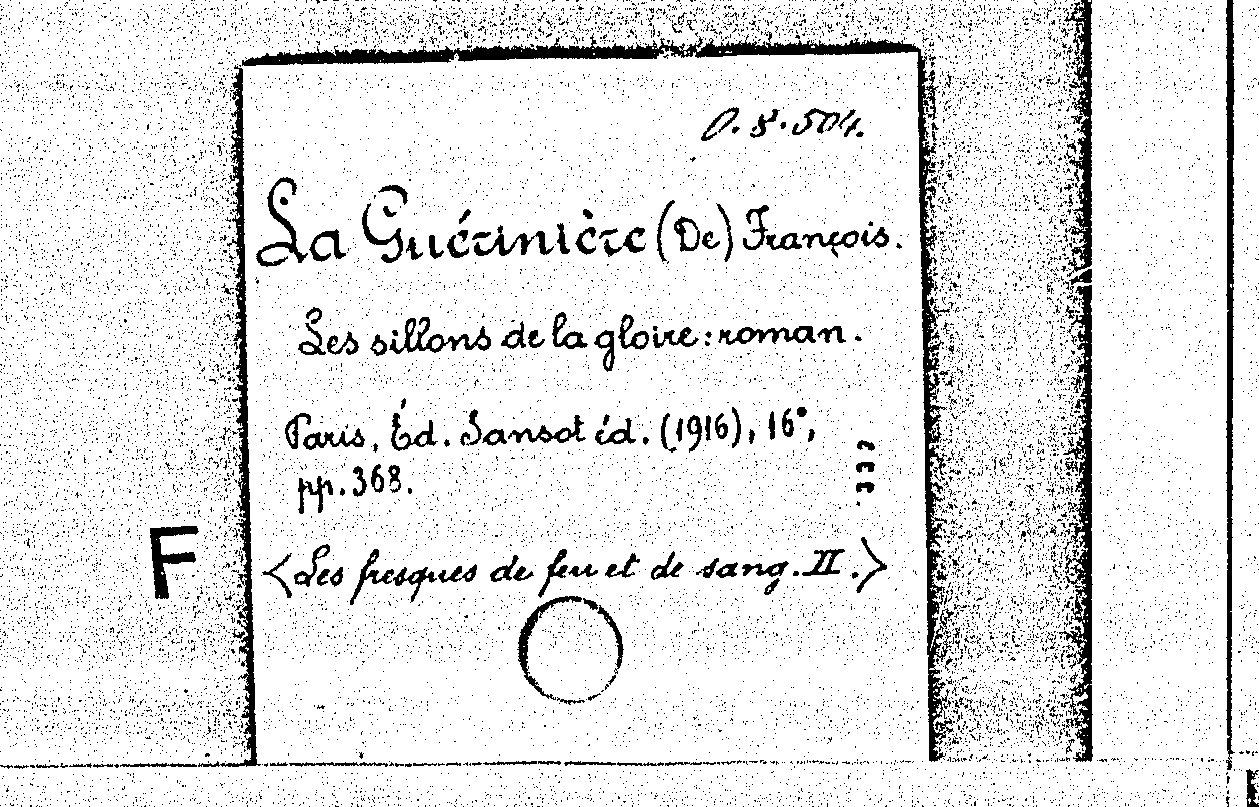 O. 8. 504.
La Guérinière (De) François.
Les sillons de la gloire : roman.
Paris, Éd. Sansot éd. (1916), 16°,
pp. 368.
F
<Les fresques de feu et de sang. II.>